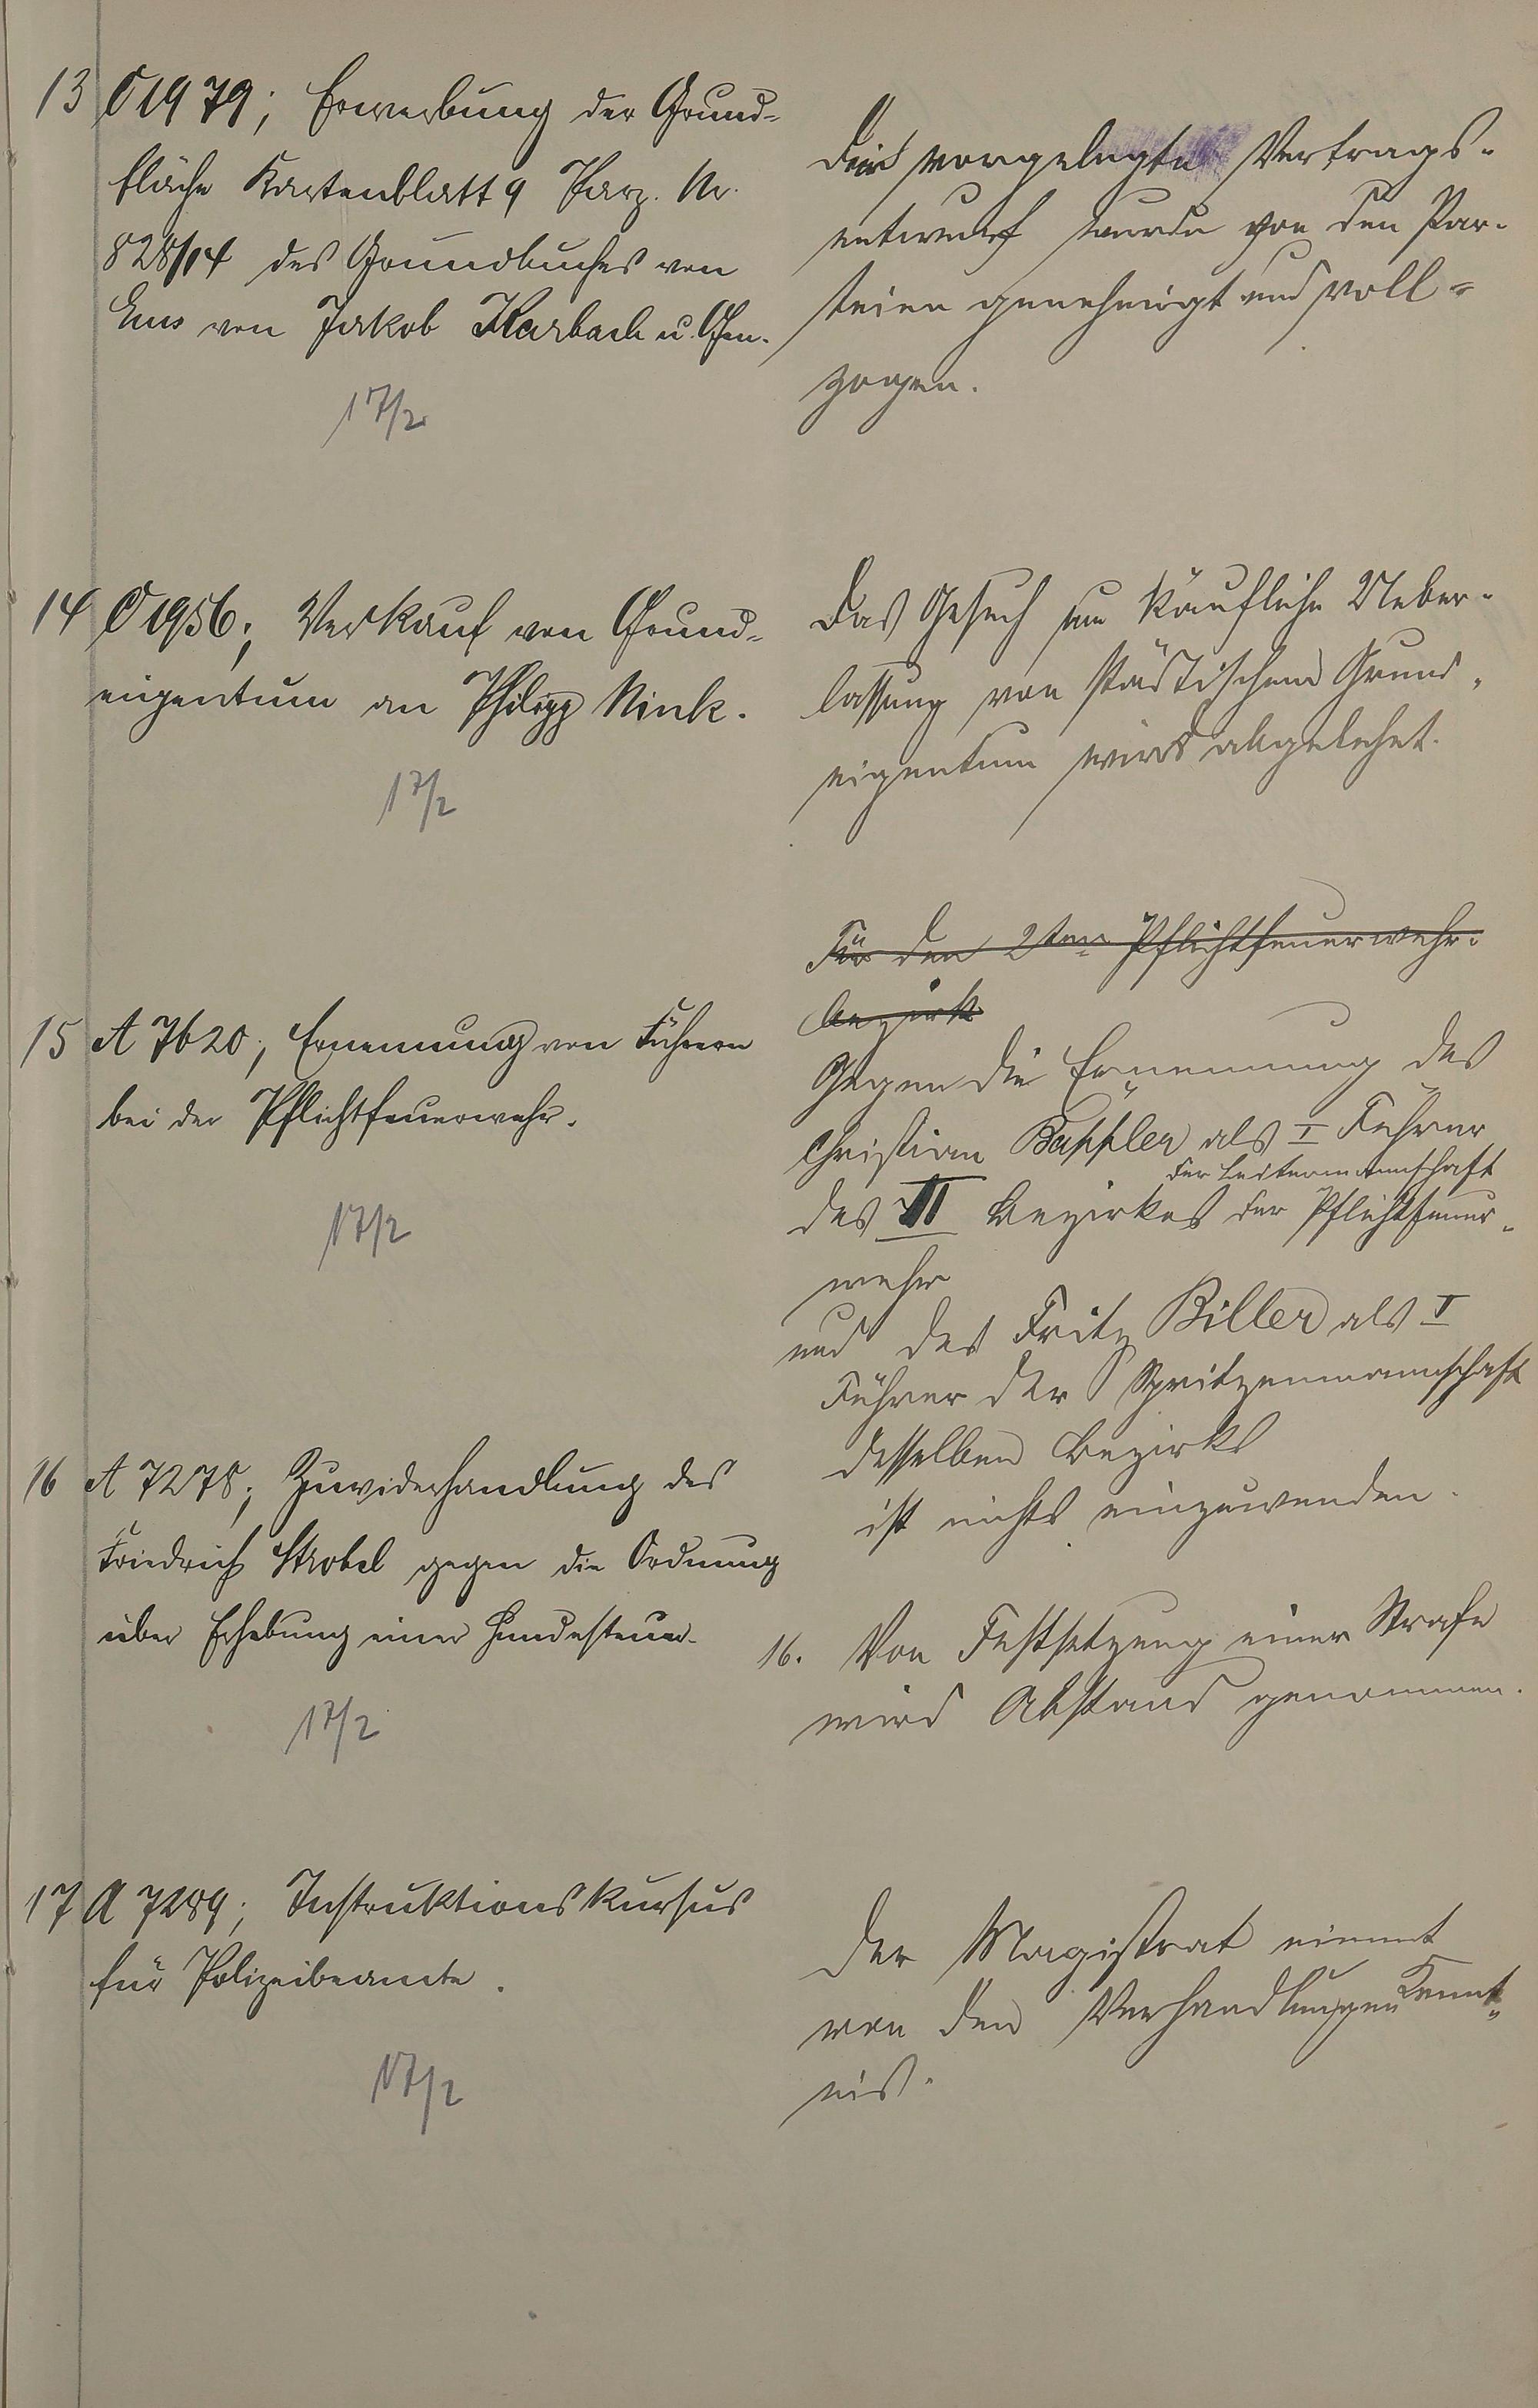 13 C 1979; Erwerbung der Grund-
fläche Kartenblatt 9 Parz. Nr.
828/14 des Grundbuches von
Ems von Jakob Karbach u. Gen.
17/2
Der vorgelegte Vertrags-
entwurf wurde von den Par-
teien genehmigt und voll-
zogen.
14 C 1956; Verkauf von Grund-
eigentum an Philipp Nink.
17/2
Das Gesuch um käufliche Ueber-
lassung von städtischem Grund-
eigentum wird abgelehnt.
15 A 7620; Ernennung von Führern
bei der Pflichtfeuerwehr.
17/2
Für den 2ten Pflichtfeuerwehr-
bezirk
Gegen die Ernennung des
Christian Bappler als I Führer
der Leitermannschaft
des II Bezirkes der Pflichtfeuer-
wehr
und des Fritz Biller als I
Führer der Spritzenmannschaft
desselben Bezirks
ist nichts einzuwenden.
16 A 7278; Zuwiderhandlung des
Friedrich Strobel gegen die Ordnung
über Erhebung einer Hundesteuer.
17/2
16. Von Festsetzung einer Strafe
wird Abstand genommen.
17 A 7289; Instruktionskursus
für Polizeibeamte.
17/2
Der Magistrat nimmt
von den Verhandlungen Kennt-
nis.